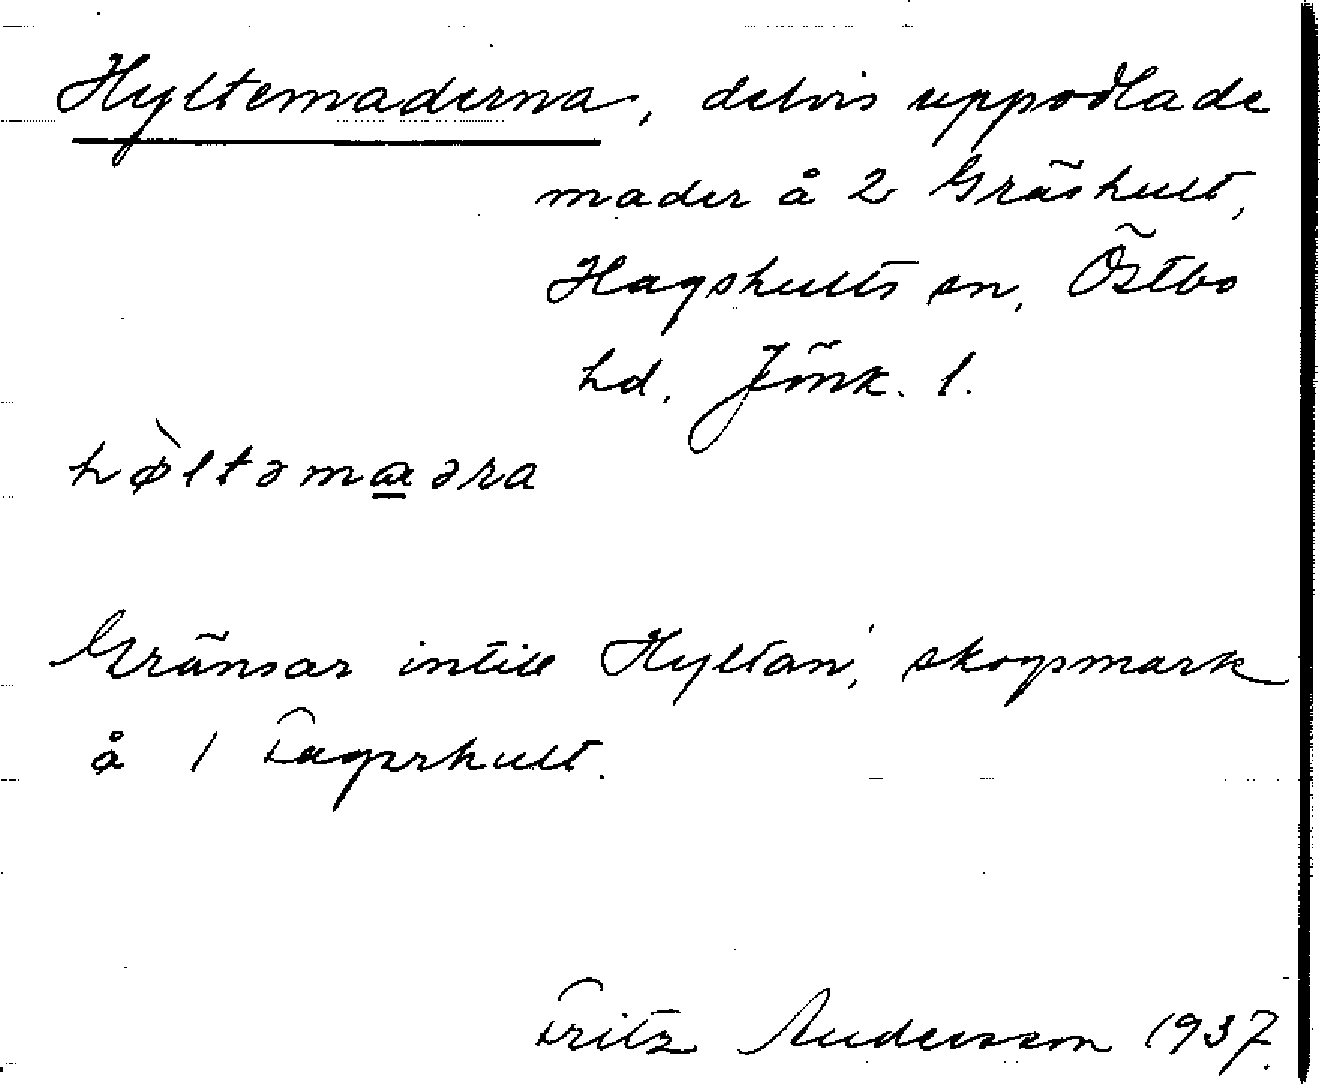 Hyltemaderna, delvis uppodlade
mader å 2 Gräshult,
Hagshults sn, Östbo
hd. Jönk. l.
hø̀ltəmaəra
Gränsar intill Hyltan, skogsmark
å 1 Fagerhult.
Fritz Andersson 1937.